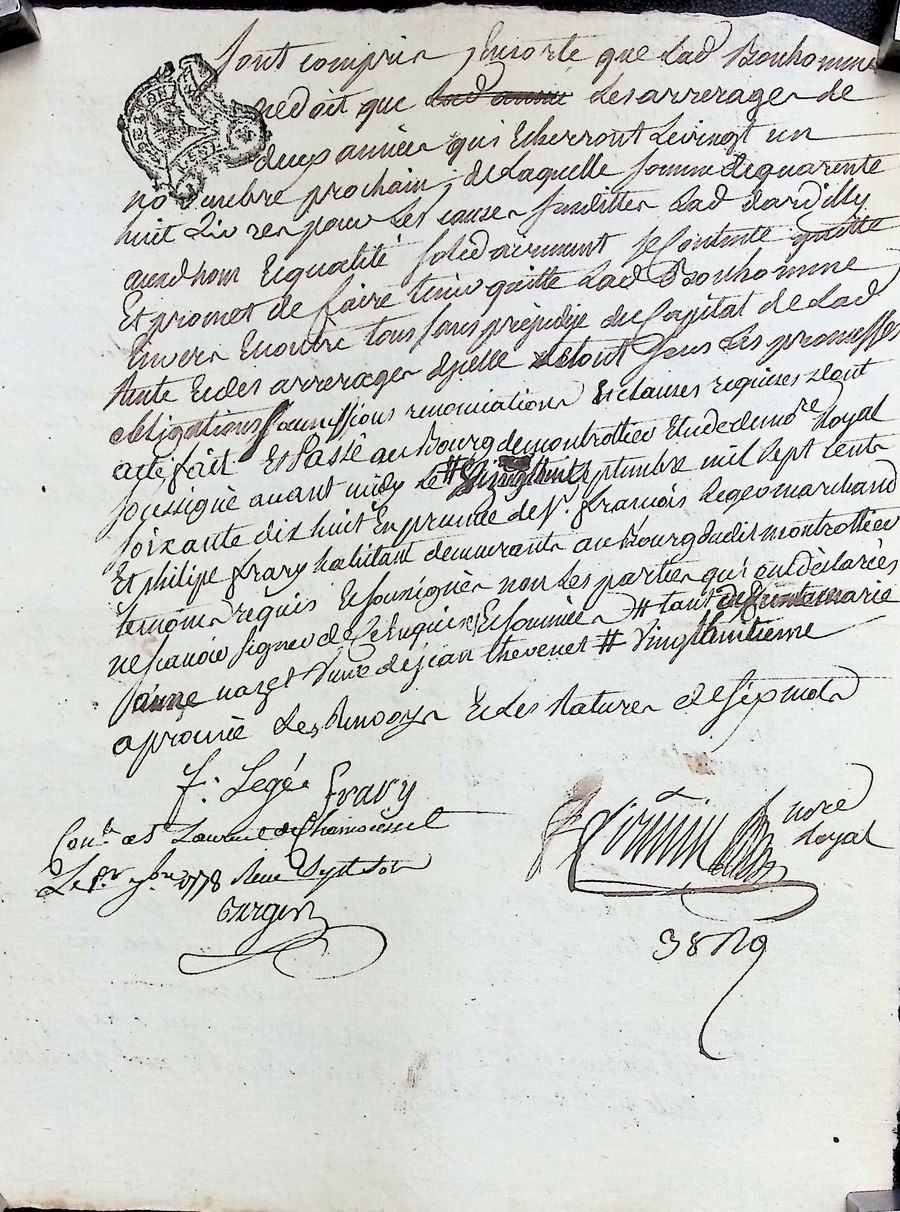 sont compris, Ensorte que Lad Bonhomme
nedoit que Lad année Les arrerages de
deux années qui Echerront Levingt un
novembre prochain, de Laquelle somme dequarente
huit Livres pour Les causes susdittes Lad dardilly
auxd nom Equalité solidairement se Contente quitte
Et promet de faire tenir quitte Lad Bonhomme
Envers Encontre tous sans prejudice du Capital de Lad
Rente Et des arrerages dycelle le tout sous Les promesses
obligations soumissions renonciations Et clauses requises dont
acte, fait Et Passé au Bourg de montrottier Etude de no.re Royal
soussigné avant midy Le # septembre mil sept cents
soixante dix huit En presence de s.r François Legeo marchand
Et philipe Frary habitant demeurants au Bourg dudit montrottier
temoins requis Et soussignés non Les parties qui ont déclarés
nescavoir signer de ce Enquises Et sommées # tant marie
anne nazet veuve de jean thevenet # vingthuitieme
aprouvé Les Renvoys Et des Ratures de six mots
f. Legéo Frary
Con.lé a S.t Laurent de Chamousset
Le p.r 8bre 1778 Reçu sept sols
nore
Royal